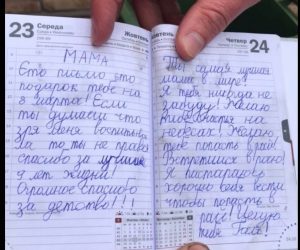 23
Середа
Жовтень
МАМА
Ето письмо это
подарок тебе на
8 марта! Если
ты думаеш что
зря меня воспитыва
ла то ты не права
спасибо за лучшие
9 лет жизни!
Огромное спасибо
за детство!!!
Жовтень
Четвер
24
Ты самая лучшая
мама в мире!
Я тебя никогда не
забуду! Желаю
на
небесах! Желаю
тебе попасть в рай!
Встретимся в раю!
Я постараюсь
хорошо себя вести
чтобы попасть в
рай! Целую
тебя